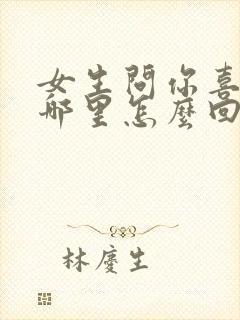 女生問你喜
哪里怎麼回
林慶生